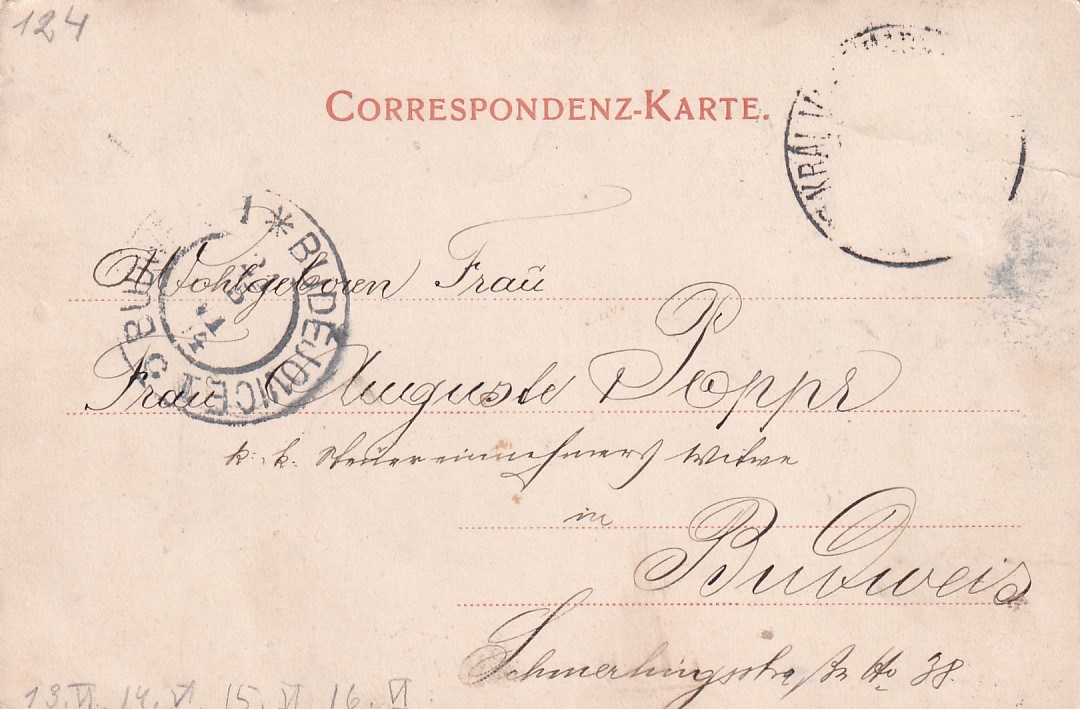 124
CORRESPONDENZ-KARTE.
KRÁL. V
1 * BUDĚJOVICE
BUD
Wohlgeboren Frau
Frau Auguste Poppr
k. k. Steuereinnehmers Witwe
in
Budweis
Schmerlingstraße No 38.
13. VI 14. VI 15. VI 16. VI.